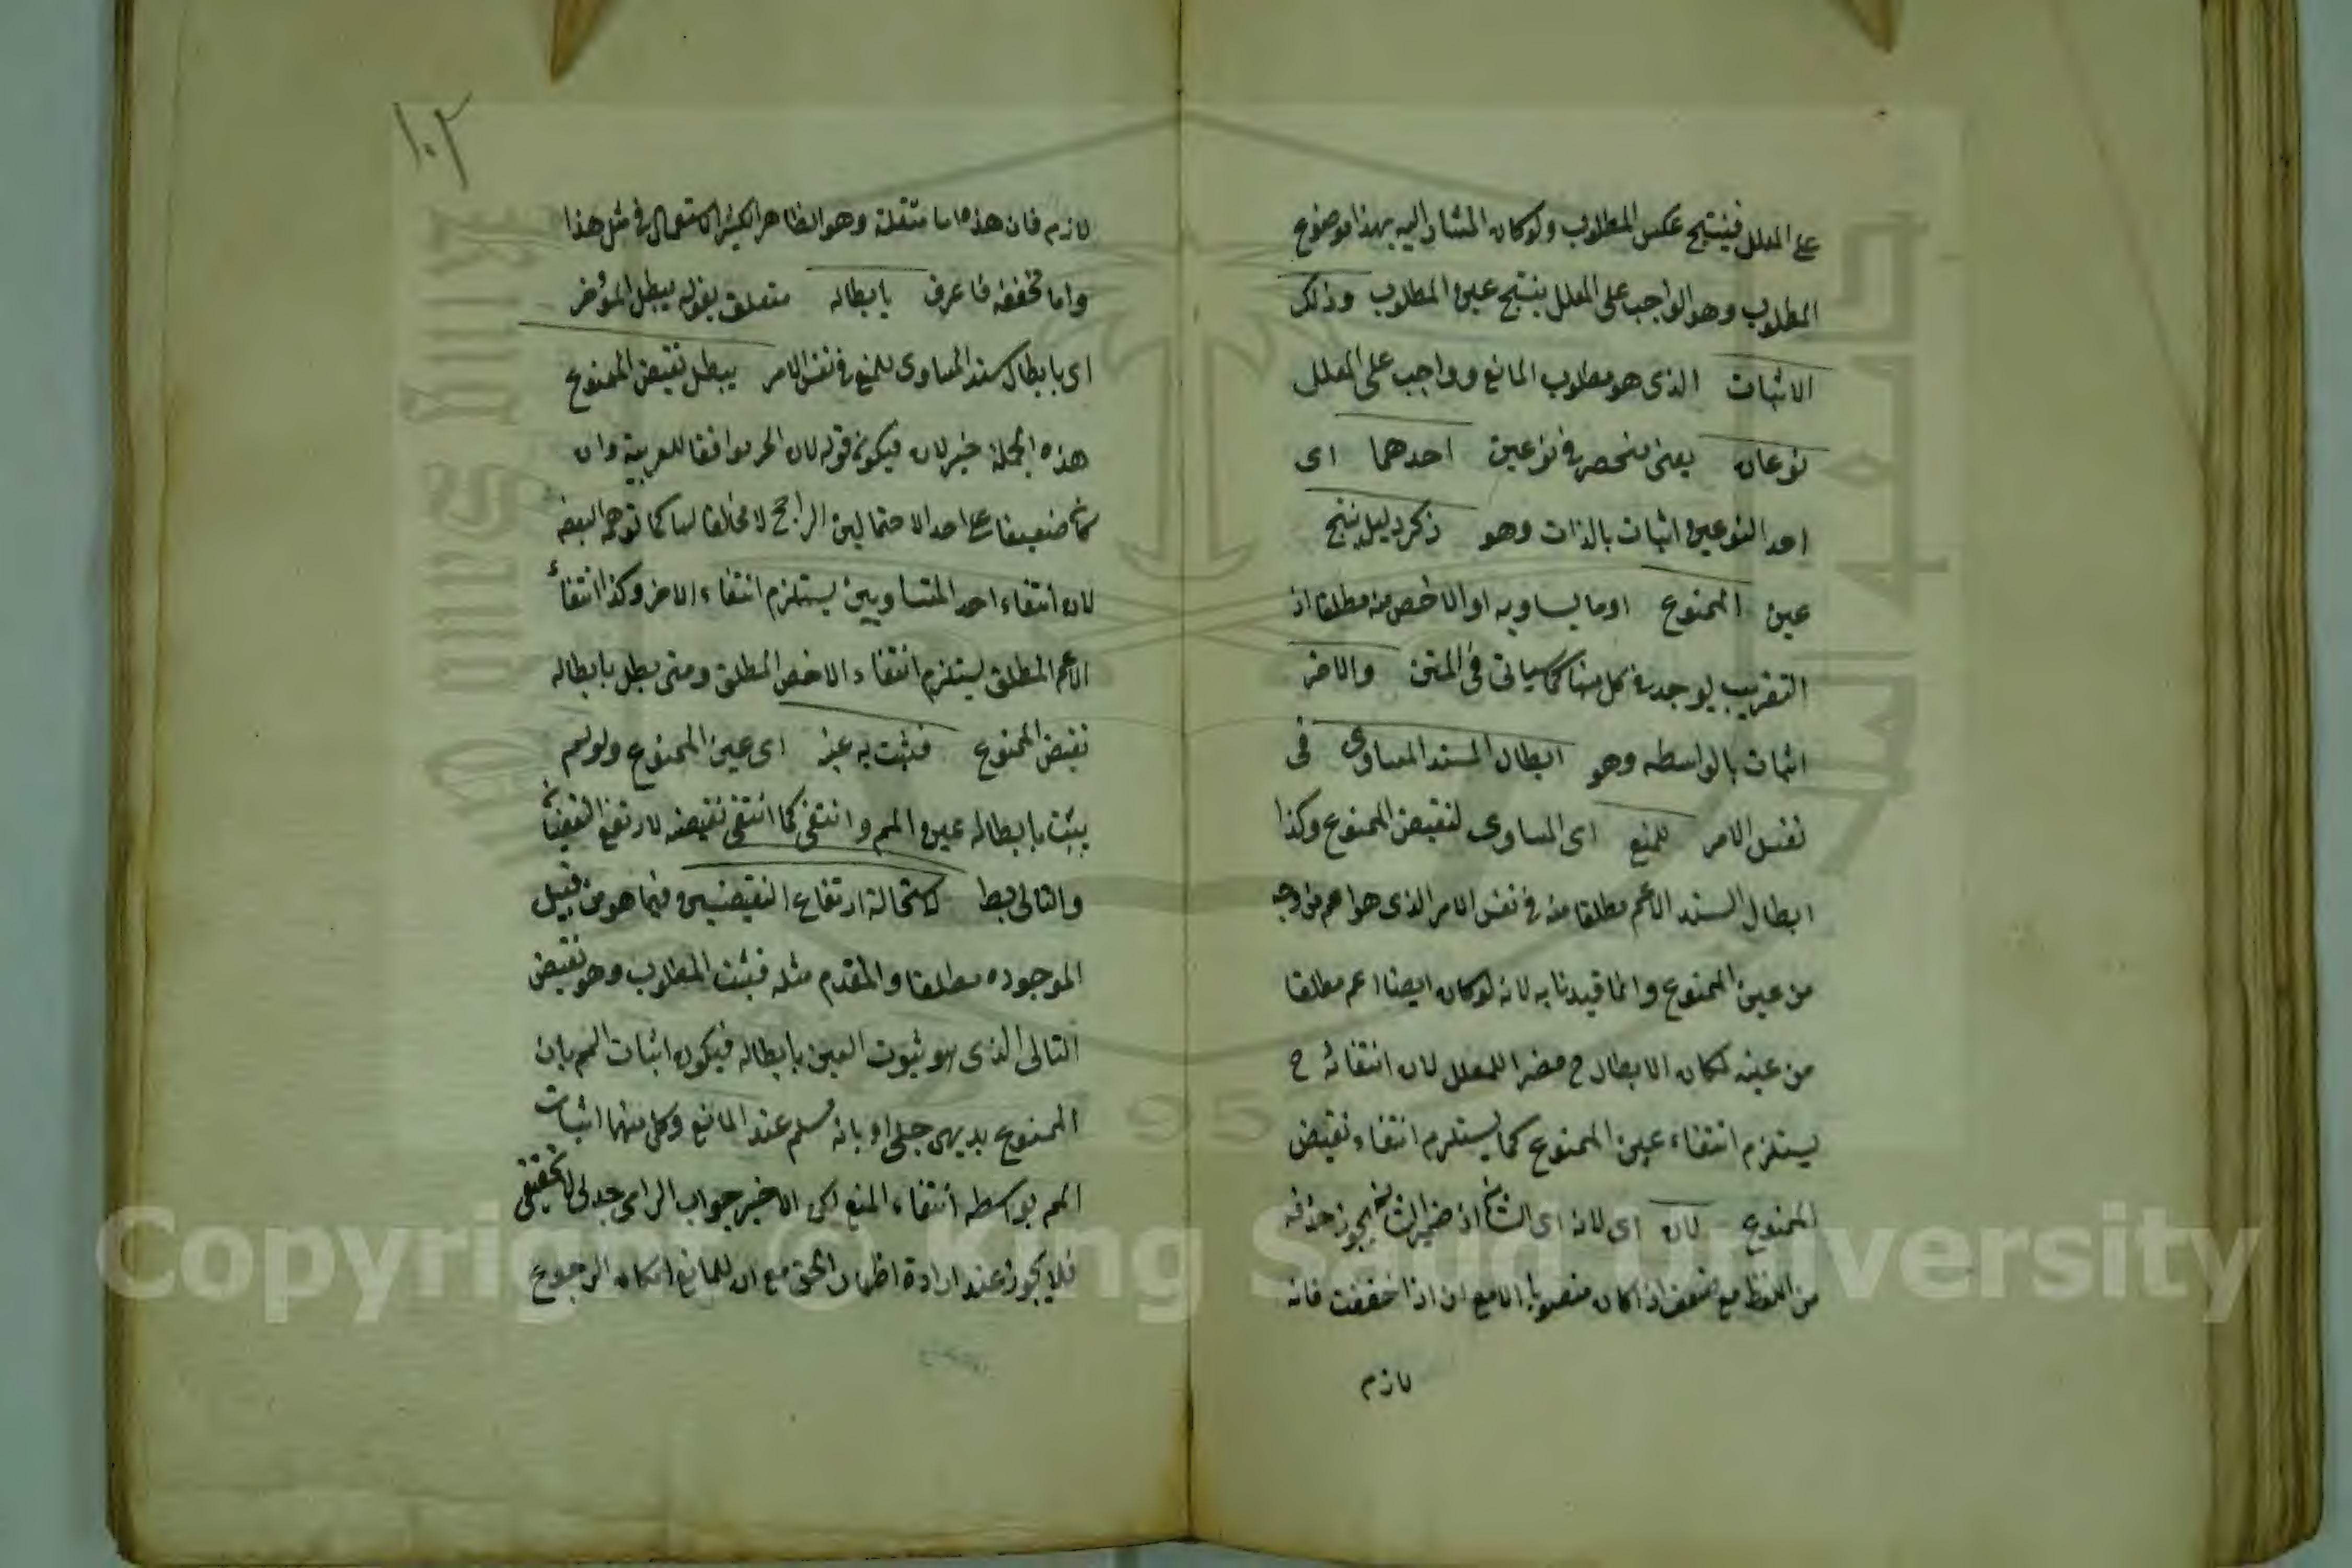 على المعلل فينتج عكس المطلوب ولو كان المشار اليه بهذا موضوع
المطلوب وهو الواجب على المعلل ينتج عين المطلوب وذلك
الاثبات الذى هو مطلوب المانع وواجب على المعلل
نوعان يعنى منحصر فى نوعين احدهما اى
احد النوعين اثبات بالذات وهو ذكر دليل ينتج
عين الممنوع او ما يساويه او الاخص منه مطلقا اذ
التقريب يوجد فى كل منها كما سياتى فى المتن والاخر
اثبات بالواسطه وهو ابطال السند المساوى فى
نفس الامر للمنع اى المساوى لنقيض الممنوع وكذا
ابطال السند الاعم مطلقا منه فى نفس الامر الذى هو اعم من وجه
من عين الممنوع وانما قيدنا به لانه لو كان ايضا اعم مطلقا
من عينه لكان الابطال ح مضرا للمعلل لان انتفائه ح
يستلزم انتفاء عين الممنوع كما يستلزم انتفاء نقيض
الممنوع لان اى لانه اى الشان اذ ضمير الشان يجوز حذفه
من اللفظ مع ضعف اذا كان منصوبا الا مع ان اذا خففت فانه
لازم
١٠٢
لازم فان هذه اما مثقلة وهو الظاهر الكثير الاستعمال فى مثل هذا
واما مخففة فاعرف بابطاله متعلق بقوله يبطل المؤخر
اى بابطال سند المساوى للمنع فى نفس الامر يبطل نقيض الممنوع
هذه الجملة خبر لان فيكون قوله لان الخ موافقا للعربية وان
كان ضعيفا على احد الاحتمالين الراجح لا مخالفا لها كما توهمه البعض
لان انتفاء احد المتساويين يستلزم انتفاء الاخر وكذا انتفاء
الاعم المطلق يستلزم انتفاء الاخص المطلق ومتى بطل بابطاله
نقيض الممنوع فثبت به عينه اى عين الممنوع ولو لم
يثبت بابطاله عين المم وانتفى كما انتفى نقيضه لارتفع النقيضان
والتالى بط لاستحالة ارتفاع النقيضين فيما هو من قبيل
الموجوده مطلقا والمقدم مثله فثبت المطلوب وهو نقيض
التالى الذى هو ثبوت العين بابطاله فيكون اثبات المم بان
الممنوع بديهى جلى او بانه مسلم عند المانع وكل منهما اثبات
المم بواسطه انتفاء المنع لكن الاخير جواب الزامى جدلى لا تحقيقى
فلا يجوز عند ارادة اظهار الحق مع ان للمانع امكان الرجوع
Copyright © King Saud University